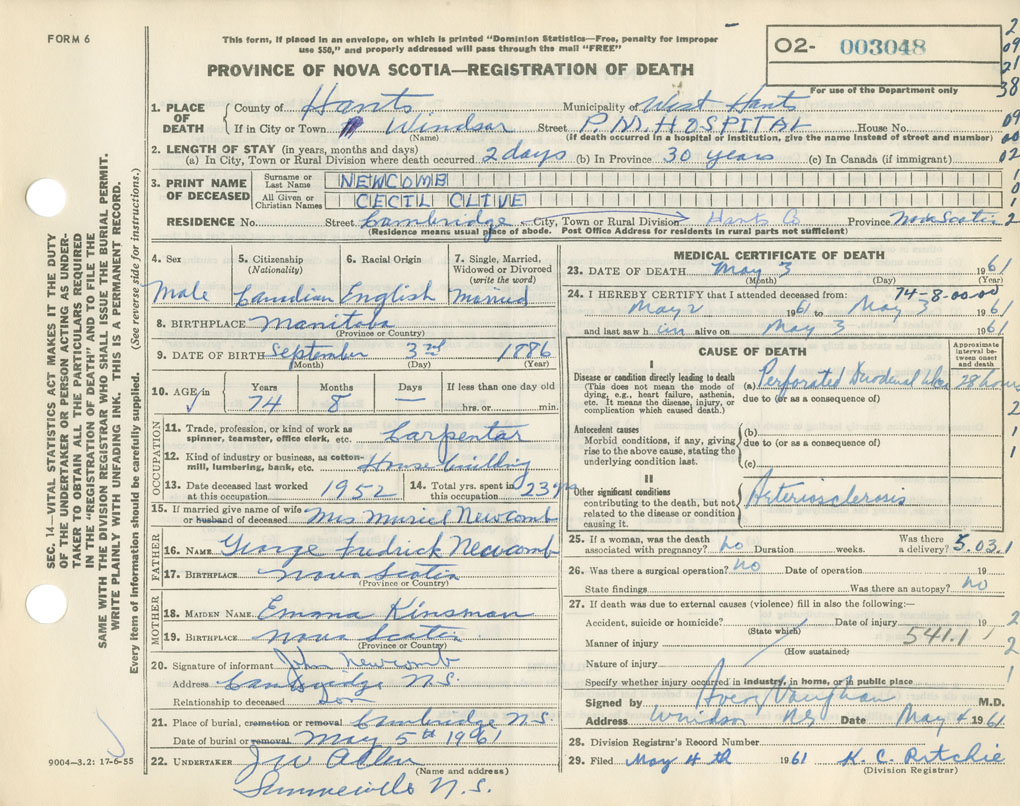 FORM 6
This form, if placed in an envelope, on which is printed "Dominion Statistics—Free, penalty for improper
use $50," and properly addressed will pass through the mail "FREE"
PROVINCE OF NOVA SCOTIA—REGISTRATION OF DEATH
02- 003048
For use of the Department only
2
09
21
38
09
00
02
1
0
1
2
SEC. 14—VITAL STATISTICS ACT MAKES IT THE DUTY
OF THE UNDERTAKER OR PERSON ACTING AS UNDER-
TAKER TO OBTAIN ALL THE PARTICULARS REQUIRED
IN THE "REGISTRATION OF DEATH" AND TO FILE THE
SAME WITH THE DIVISION REGISTRAR WHO SHALL ISSUE THE BURIAL PERMIT.
WRITE PLAINLY WITH UNFADING INK. THIS IS A PERMANENT RECORD.
Every item of information should be carefully supplied. (See reverse side for instructions.)
1. PLACE OF DEATH County of Hants Municipality of West Hants
If in City or Town Windsor Street P.M. HOSPITAL House No.
(Name) (If death occurred in a hospital or institution, give the name instead of street and number)
2. LENGTH OF STAY (in years, months and days)
(a) In City, Town or Rural Division where death occurred 2 days (b) In Province 30 years (c) In Canada (if immigrant)
3. PRINT NAME OF DECEASED Surname or Last Name NEWCOMB
All Given or Christian Names CECIL CLIVE
RESIDENCE No. Street Cambridge City, Town or Rural Division Hants Co Province Nova Scotia
(Residence means usual place of abode. Post Office Address for residents in rural parts not sufficient)
4. Sex 5. Citizenship (Nationality) 6. Racial Origin 7. Single, Married, Widowed or Divorced (write the word)
Male Canadian English Married
8. BIRTHPLACE Manitoba
(Province or Country)
9. DATE OF BIRTH September 3rd 1886
(Month) (Day) (Year)
10. AGE/IN Years Months Days If less than one day old
74 8 — hrs. or min.
OCCUPATION
11. Trade, profession, or kind of work as spinner, teamster, office clerk, etc. Carpentar
12. Kind of industry or business, as cotton-mill, lumbering, bank, etc. House building
13. Date deceased last worked at this occupation 1952 14. Total yrs. spent in this occupation 23 yrs
15. If married give name of wife or husband of deceased Mrs Muriel Newcomb
FATHER
16. NAME George Fredrick Newcomb
17. BIRTHPLACE Nova Scotia
(Province or Country)
MOTHER
18. MAIDEN NAME Emma Kinsman
19. BIRTHPLACE Nova Scotia
(Province or Country)
20. Signature of informant John Newcomb
Address Cambridge N.S.
Relationship to deceased Son
21. Place of burial, cremation or removal Cambridge N.S.
Date of burial or removal May 5th 1961
22. UNDERTAKER J W Allen
(Name and address)
N.S.
9004—3.2: 17-6-55
MEDICAL CERTIFICATE OF DEATH
23. DATE OF DEATH May 3 1961
(Month) (Day) (Year)
24. I HEREBY CERTIFY that I attended deceased from: 74-8-00-00
May 2 1961 to May 3 1961
and last saw h im alive on May 3 1961
CAUSE OF DEATH
Approximate interval between onset and death
I
Disease or condition directly leading to death
(This does not mean the mode of dying, e.g., heart failure, asthenia, etc. It means the disease, injury, or complication which caused death.)
(a) Perforated Duodenal Ulcer 28 hours
due to (or as a consequence of)
Antecedent causes
Morbid conditions, if any, giving rise to the above cause, stating the underlying condition last.
(b)
due to (or as a consequence of)
(c)
2
1
1
II
Other significant conditions contributing to the death, but not related to the disease or condition causing it.
Arteriosclerosis
25. If a woman, was the death associated with pregnancy? No Duration weeks. Was there a delivery? 5.03.1
26. Was there a surgical operation? No Date of operation 19
State findings Was there an autopsy? No
27. If death was due to external causes (violence) fill in also the following:—
Accident, suicide or homicide? Date of injury 19 2
(State which)
Manner of injury 541.1 2
(How sustained)
Nature of injury
Specify whether injury occurred in industry, in home, or in public place 1
Signed by Avery Vaughan M.D.
Address Windsor NS Date May 4 1961
28. Division Registrar's Record Number
29. Filed May 4th 1961 K. C. Ritchie
(Division Registrar)